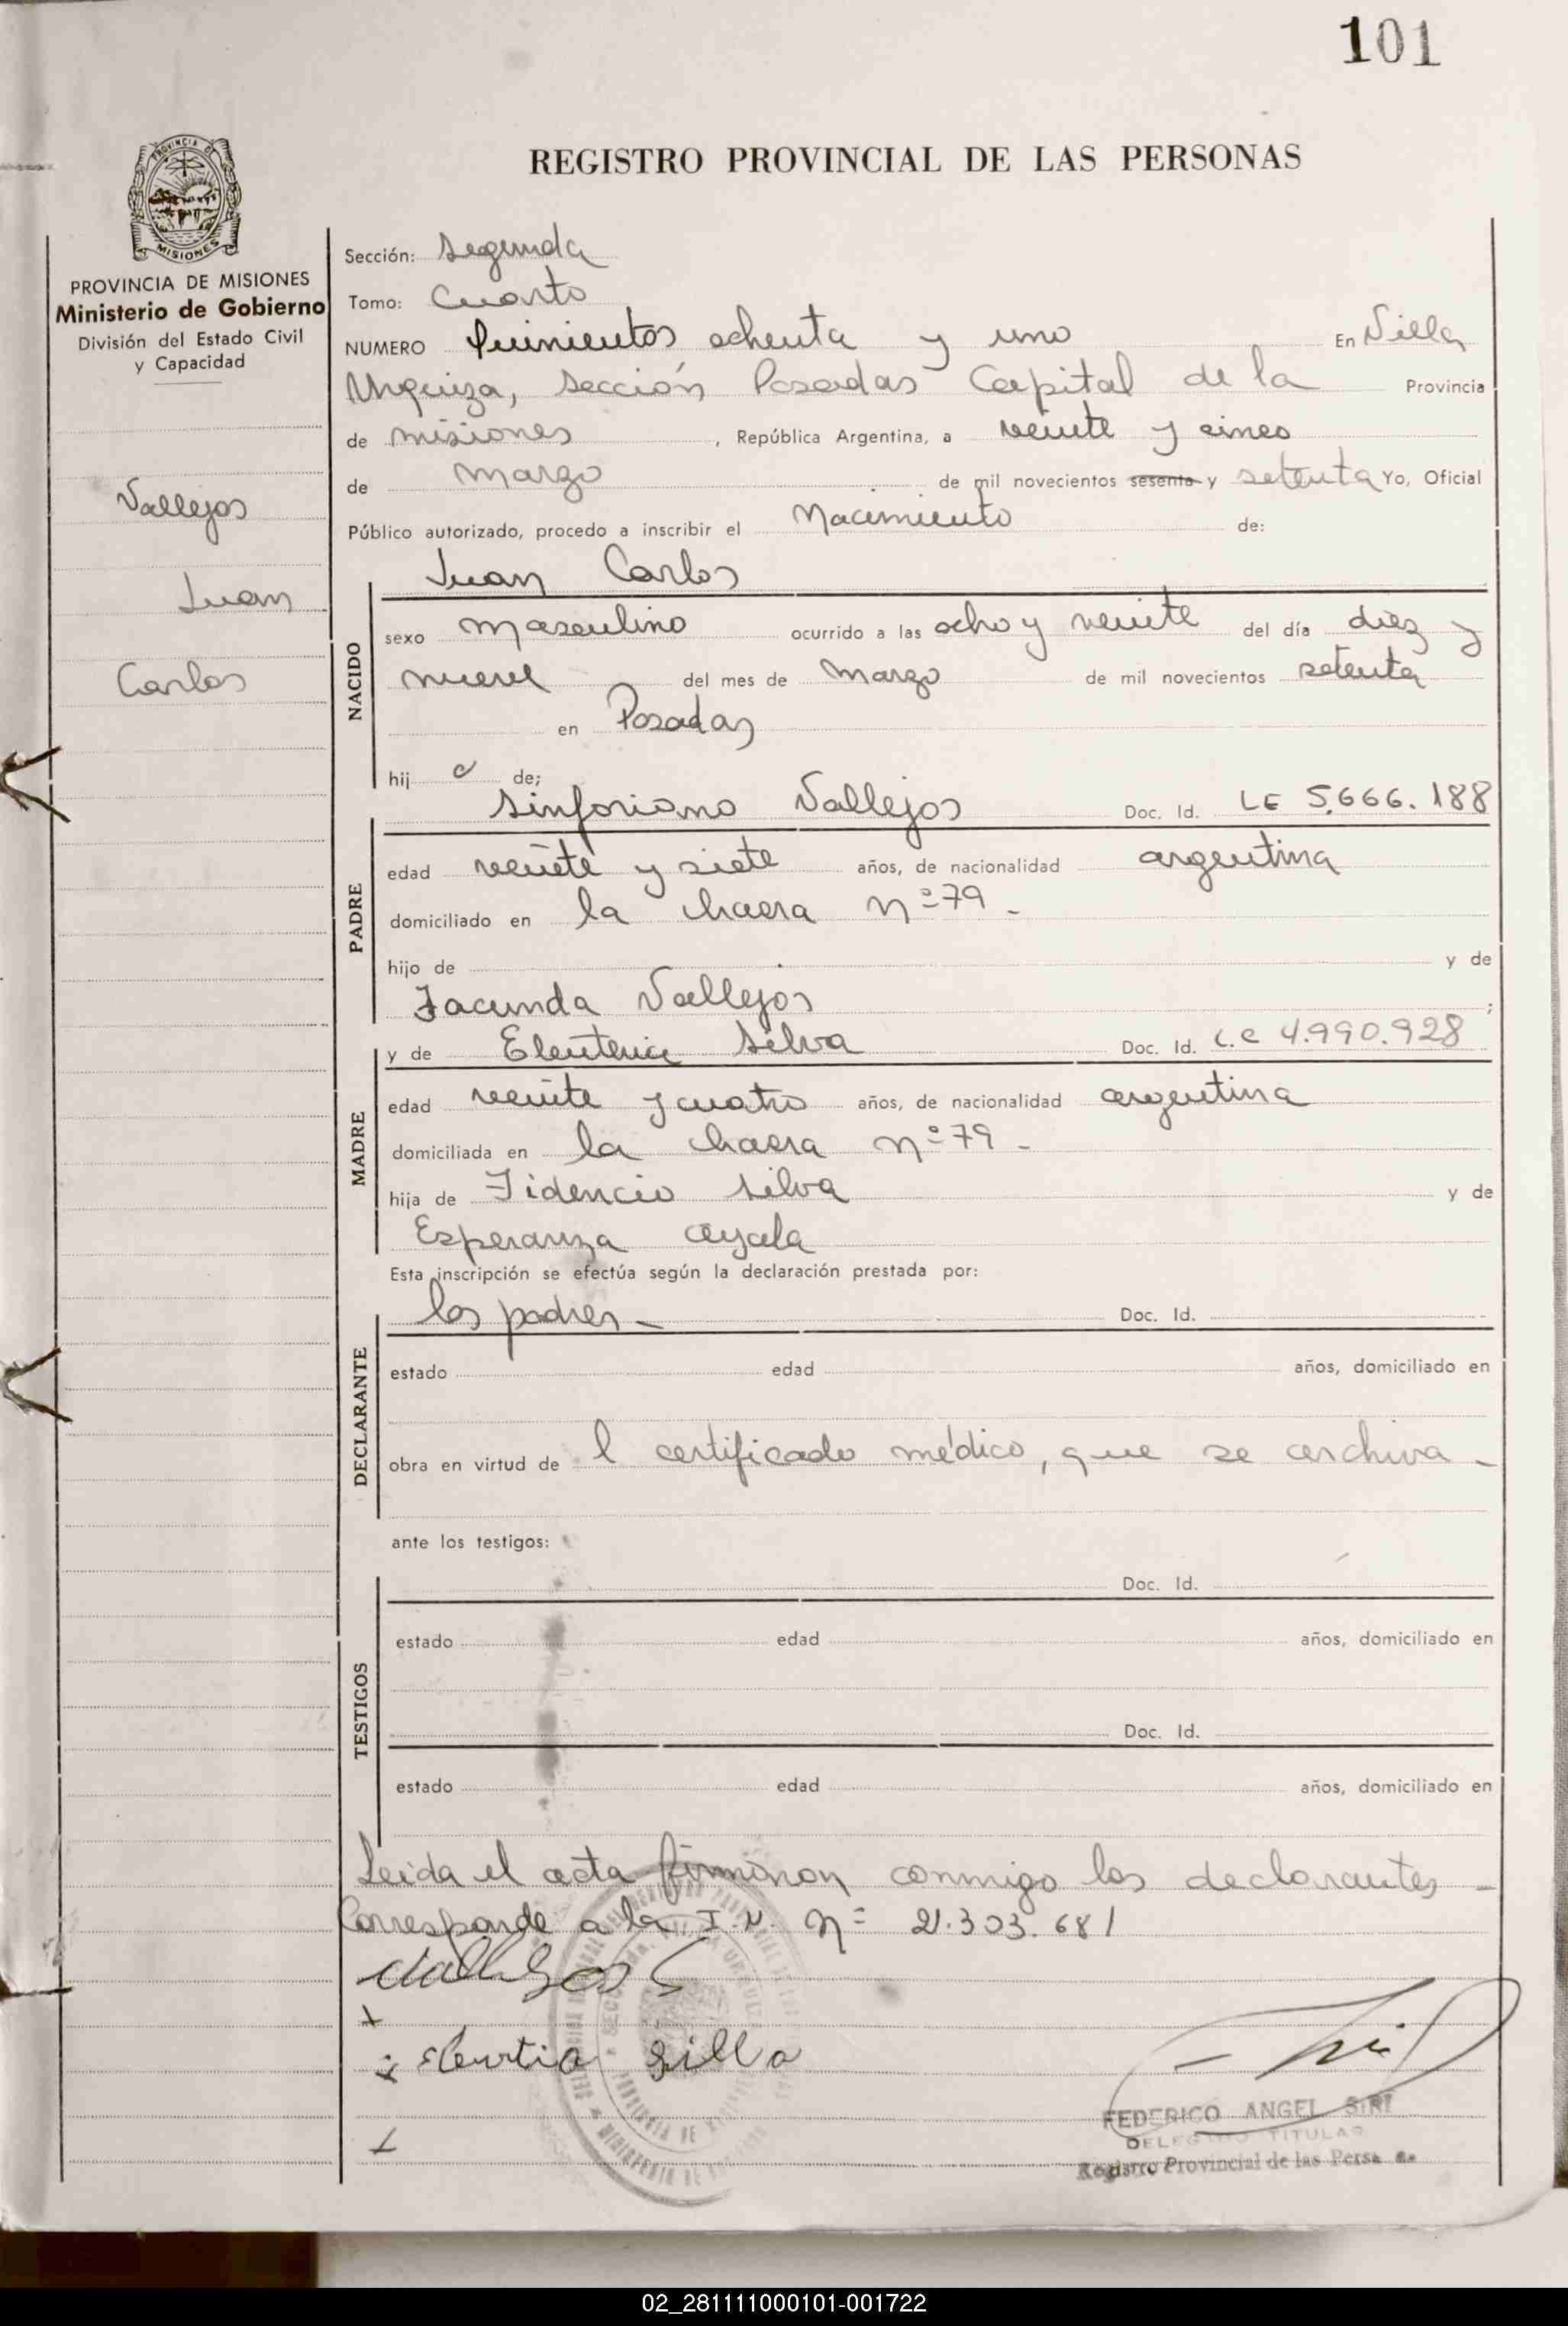 101
PROVINCIA DE
MISIONES
REGISTRO PROVINCIAL DE LAS PERSONAS
PROVINCIA DE MISIONES
Ministerio de Gobierno
División del Estado Civil
y Capacidad
Vallejos
Juan
Carlos
Sección: Segunda
Tomo: Cuarto
NUMERO Quinientos ochenta y uno En Villa
Urquiza, Sección Posadas Capital de la Provincia
de misiones, República Argentina, a veinte y cinco
de marzo de mil novecientos sesenta y setenta Yo, Oficial
Público autorizado, procedo a inscribir el Nacimiento de:
Juan Carlos
NACIDO
sexo masculino ocurrido a las ocho y veinte del día diez y
nueve del mes de marzo de mil novecientos setenta
en Posadas
hij o de;
Sinforiano Vallejos Doc. Id. LE 5.666.188
PADRE
edad veinte y siete años, de nacionalidad argentina
domiciliado en la chacra nº 79 -
hijo de y de
Facunda Vallejos ;
y de Eleuteria Silva Doc. Id. L.C 4.990.928
MADRE
edad veinte y cuatro años, de nacionalidad argentina
domiciliada en la chacra nº 79 -
hija de Fidencio Silva y de
Esperanza Ayala
Esta inscripción se efectúa según la declaración prestada por:
los padres - Doc. Id.
DECLARANTE
estado edad años, domiciliado en
obra en virtud de l certificado médico, que se archiva -
ante los testigos:
Doc. Id.
TESTIGOS
estado edad años, domiciliado en
Doc. Id.
estado edad años, domiciliado en
Leida el acta firmaron conmigo los declarantes -
Corresponde a la I.N. nº 21.303.681
Vallejos S
Eleurtia Silla
FEDERICO ANGEL SIRI
DELEGADO TITULAR
Registro Provincial de las Personas
02_281111000101-001722